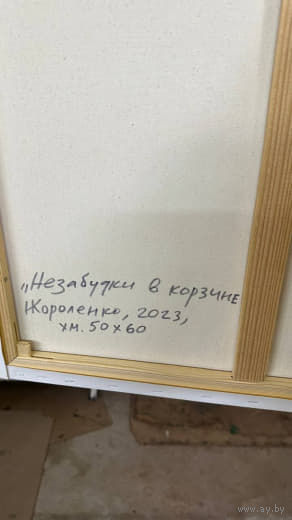 „Незабудки в корзине
Короленко, 2023,
хм. 50х60
www.ay.by